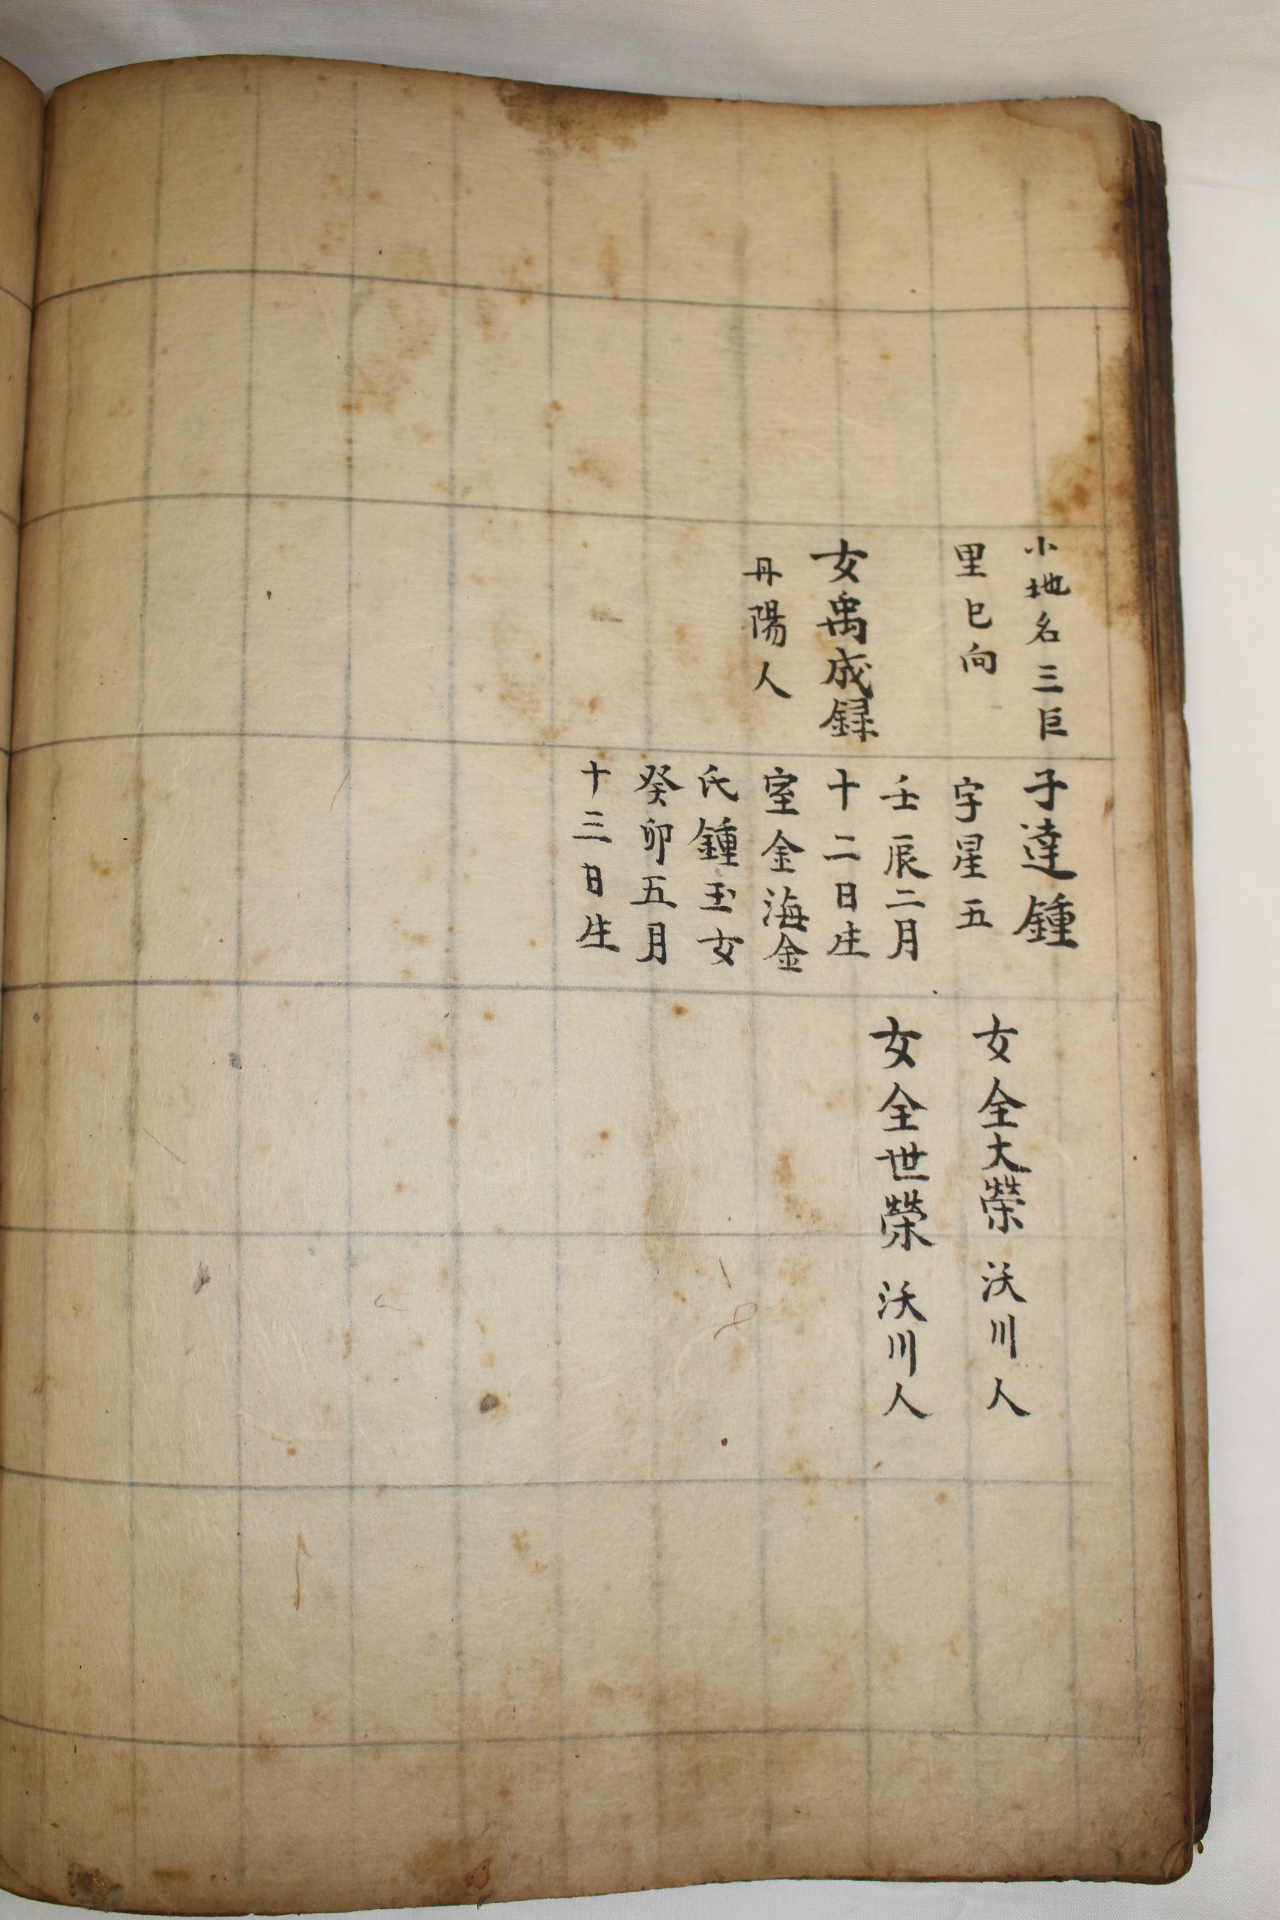 小地名三巨
里巳向
女禹成録
丹陽人
子達鍾
字星五
壬辰二月
十二日生
室金海金
氏鍾玉女
癸卯五月
十三日生
女全大榮 沃川人
女全世榮 沃川人